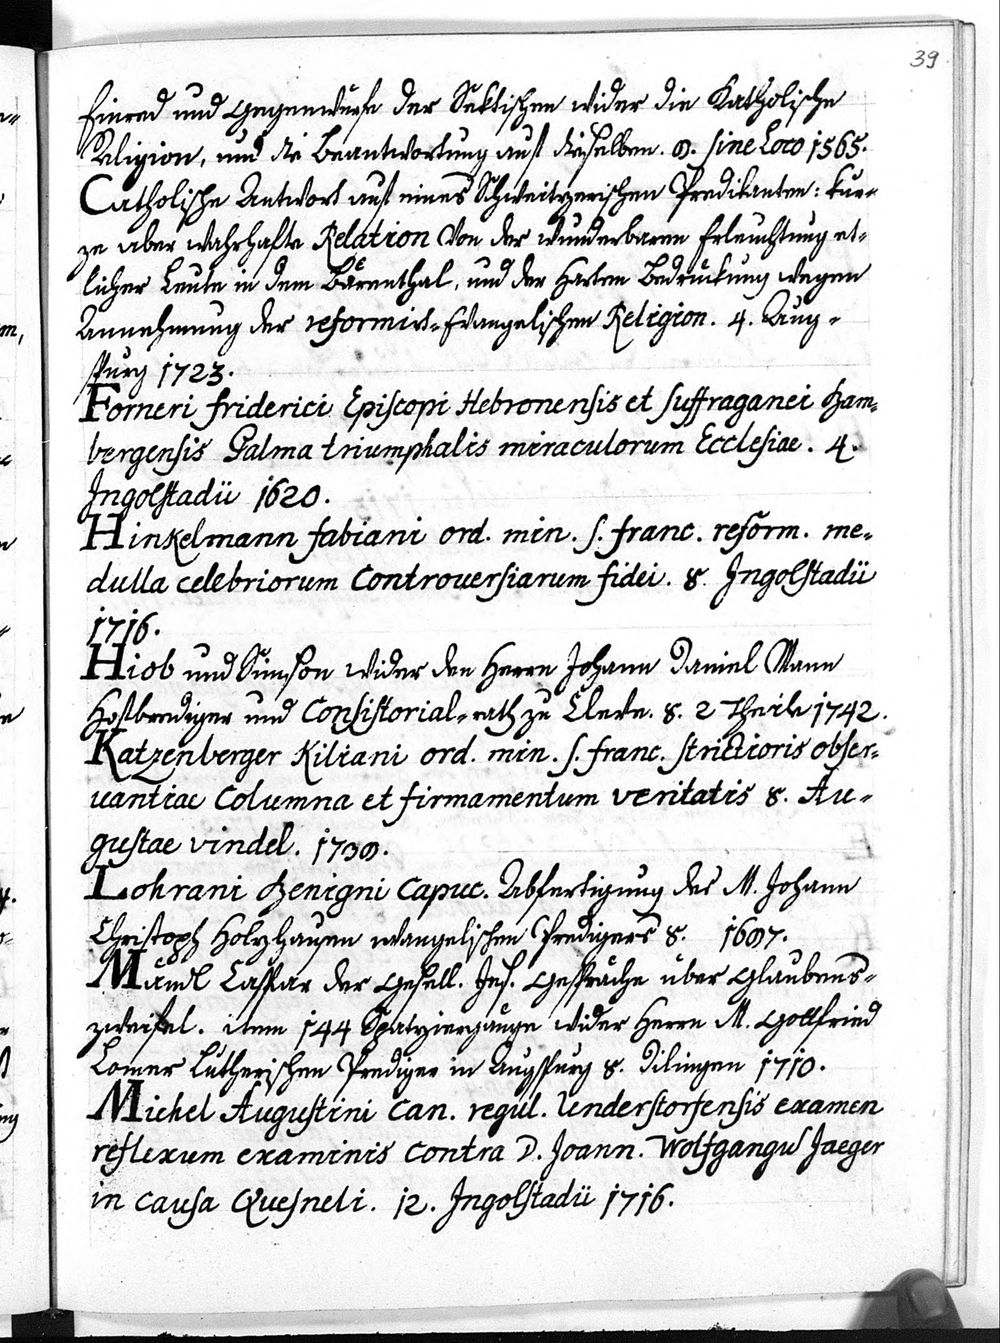 39
Einred und Gegenwürfe der Sektischen wider die Katholische
Religion, und die Beantwortung auf dieselben. 8. sine Loco 1565.
Catholische Antwort auf eines Schweitzerischen Predikanten: kur-
ze aber wahrhafte Relation von der wunderbaren Erleuchtung et-
licher Leute in dem Bärenthal, und der harten Bedrückung wegen
Annehmung der reformirt-Evangelischen Religion. 4. Aug-
spurg 1723.
Forneri Friderici Episcopi Hebronensis et suffraganei Bam-
bergensis Palma triumphalis miraculorum Ecclesiae. 4.
Ingolstadii 1620.
Hinkelmann Fabiani ord. min. S. Franc. reform. me-
dulla celebriorum Controversiarum fidei. 8. Ingolstadii
1716.
Hiob und Simson wider den Herrn Johann Daniel Mann
Hofprediger und Consistorial-rath zu Cleve. 8. 2 Theile 1742.
Katzenberger Kiliani ord. min. S. Franc. strictioris obser-
vantiae Columna et firmamentum veritatis 8. Au-
gustae vindel.
Lohrani Benigni Capuc. Abfertigung des M. Johann
Christoph Holzhausen evangelischen Predigers 8. 1697.
Mändl Caspar der Gesell. Jes. Gespräche über Glaubens-
zweifel. item 144 Spatziergänge wider Herrn M. Gottfried
Lomer Lutherischen Prediger in Augspurg 8. Dilingen 1710.
Michel Augustini Can. regul. Understorfensis examen
reflexum examinis contra D. Joann. Wolfgangu Jaeger
in causa Quesneli. 12. Ingolstadii 1716.